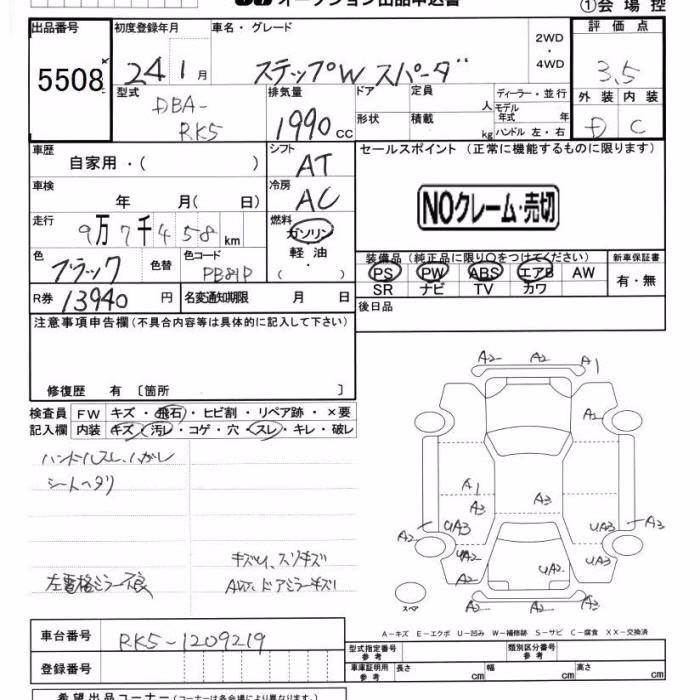 オークション出品申込書
①会場控
出品番号 初度登録年月 車名・グレード 2WD・4WD 評価点
5508 24 1月 ステップW スパーダ 3.5
型式 DBA-RK5 排気量 1990cc ドア 定員 人 ディーラー・並行 外装 内装
形状 積載 kg モデル年式 年 ハンドル 左・右 D C
車歴 自家用・( ) シフト AT セールスポイント (正常に機能するものに限ります)
車検 年 月( 日) 冷房 AC
NOクレーム・売切
走行 9万7千458km 燃料 ガソリン 軽油・( )
色 ブラック 色替 色コード PB81P
装備品 (純正品に限り○をつけてください) 新車保証書
PS PW ABS エアB AW 有・無
SR ナビ TV カワ
R券 13940円 名変通知期限 月 日 後日品
注意事項申告欄 (不具合内容等は具体的に記入して下さい)
修復歴 有 〔箇所 〕
検査員 FW キズ・飛石・ヒビ割・リペア跡・×要
記入欄 内装 キズ・汚レ・コゲ・穴・スレ・キレ・破レ
ハンドルスレ、ハガレ
シートヘタリ
キズU、スリキズ
左電格ミラー不良
ドアミラーキズ
A2 A2 A1
A2
A1
A3 A3
A2 UA3 UA3 A3
UA2 UA2 UA2
A2 A2
スペア
A-キズ E-エクボ U-凹み W-補修跡 S-サビ C-腐食 XX-交換済
車台番号 RK5-1209219
型式指定番号 参考 類別区分番号 参考
登録番号 車庫証明用 参考 長さ cm 幅 cm 高さ cm
希望出品コーナー (コーナーは各会場により異なります。)